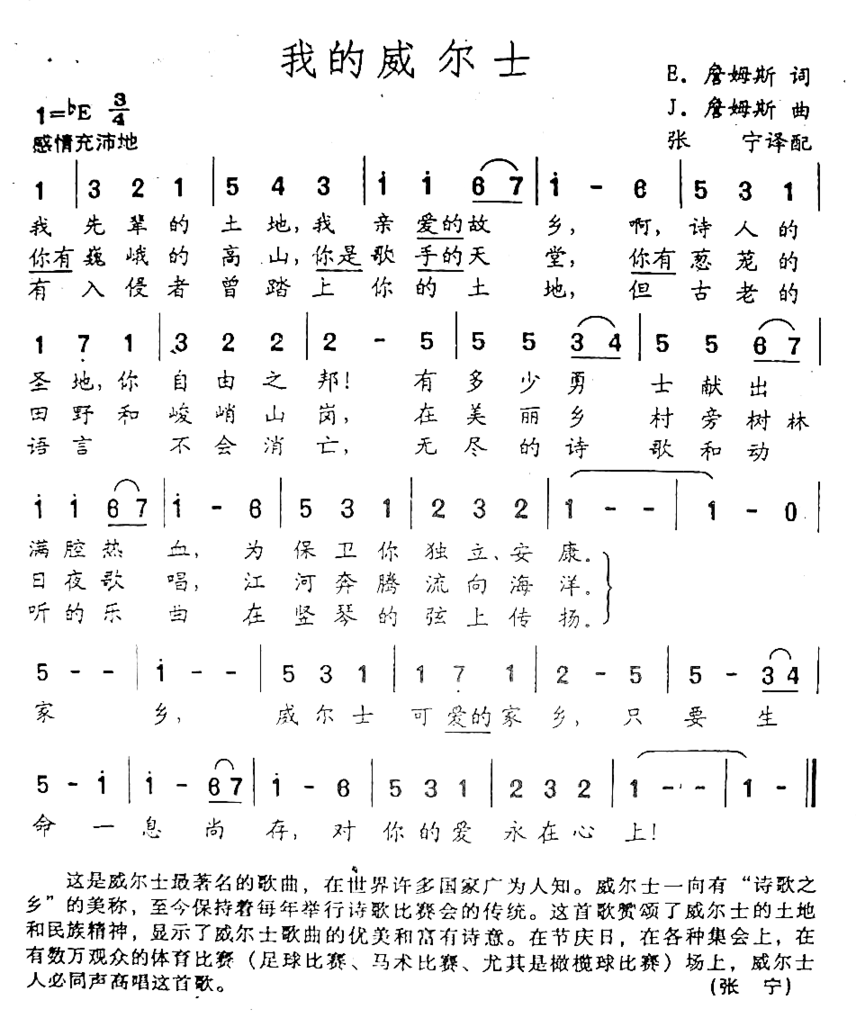 我的威尔士
E. 詹姆斯 词
1=♭E 3/4
J. 詹姆斯 曲
感情充沛地
张 宁译配
1 | 3 2 1 | 5 4 3 | i i 6 7 | i - 6 | 5 3 1 |
我 先辈的 土地,我 亲爱的故 乡, 啊, 诗人的
你有巍峨的 高山,你是歌手的天 堂, 你有葱茏的
有 入侵者 曾踏上 你的土 地, 但 古老的
1 7 1 | 3 2 2 | 2 - 5 | 5 5 3 4 | 5 5 6 7 |
圣地,你 自由之 邦! 有 多少勇 士献出
田野和 峻峭山 岗, 在 美丽乡 村旁树林
语言 不会消 亡, 无 尽的诗 歌和动
i i 6 7 | i - 6 | 5 3 1 | 2 3 2 | 1 - - | 1 - 0
满腔热 血, 为 保卫你 独立、安 康。
日夜歌 唱, 江 河奔腾 流向海 洋。
听的乐 曲 在 竖琴的 弦上传 扬。
5 - - | i - - | 5 3 1 | 1 7 1 | 2 - 5 | 5 - 3 4 |
家 乡, 威尔士 可爱的家 乡, 只 要 生
5 - i | i - 6 7 | i - 6 | 5 3 1 | 2 3 2 | 1 - - | 1 - ||
命 一 息 尚 存, 对 你的爱 永在心 上!
这是威尔士最著名的歌曲，在世界许多国家广为人知。威尔士一向有“诗歌之
乡”的美称，至今保持着每年举行诗歌比赛会的传统。这首歌赞颂了威尔士的土地
和民族精神，显示了威尔士歌曲的优美和富有诗意。在节庆日，在各种集会上，在
有数万观众的体育比赛（足球比赛、马术比赛、尤其是橄榄球比赛）场上，威尔士
人必同声高唱这首歌。 (张 宁)